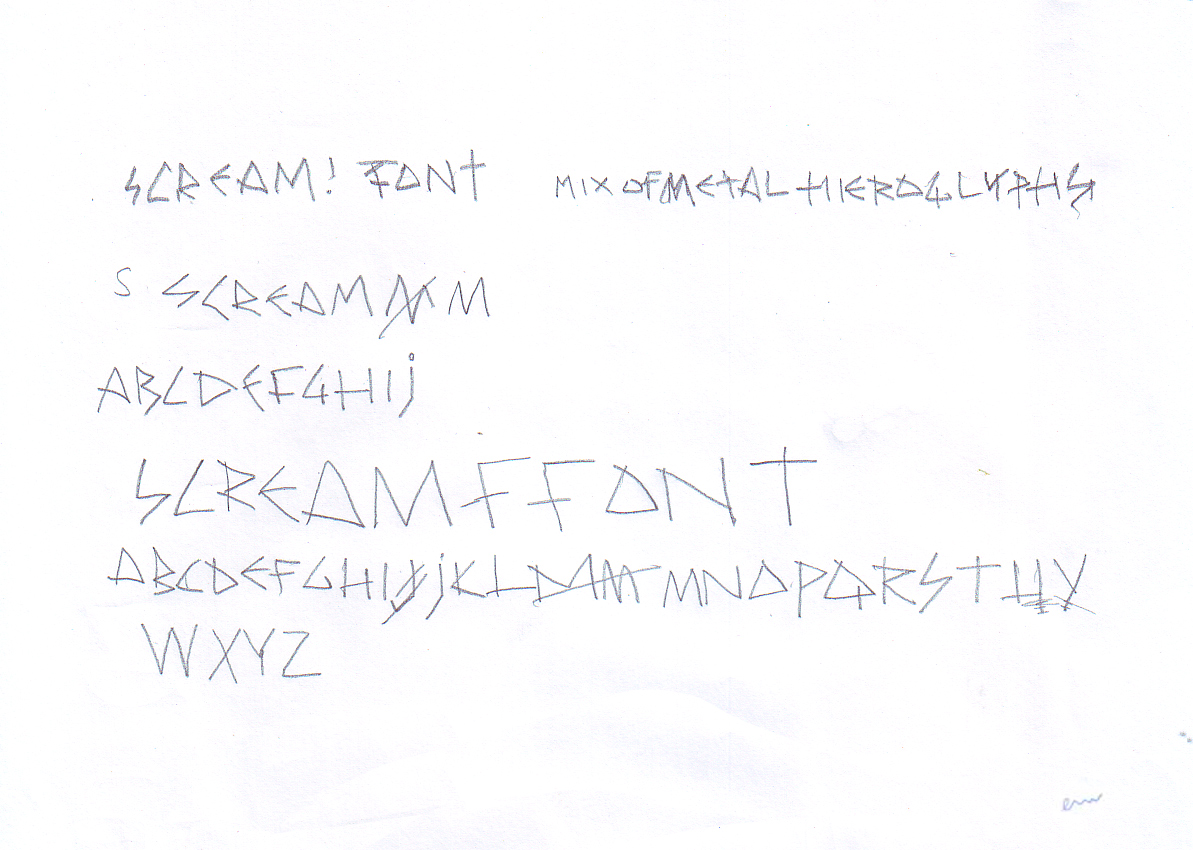 SCREAM! FONT MIX OF METAL HIEROGLYPHS
S SCREAM M M
ABCDEFGHIj
SCREAM F FONT
ABCDEFGHIjjKL MNOPQRSTUV
WXYZ